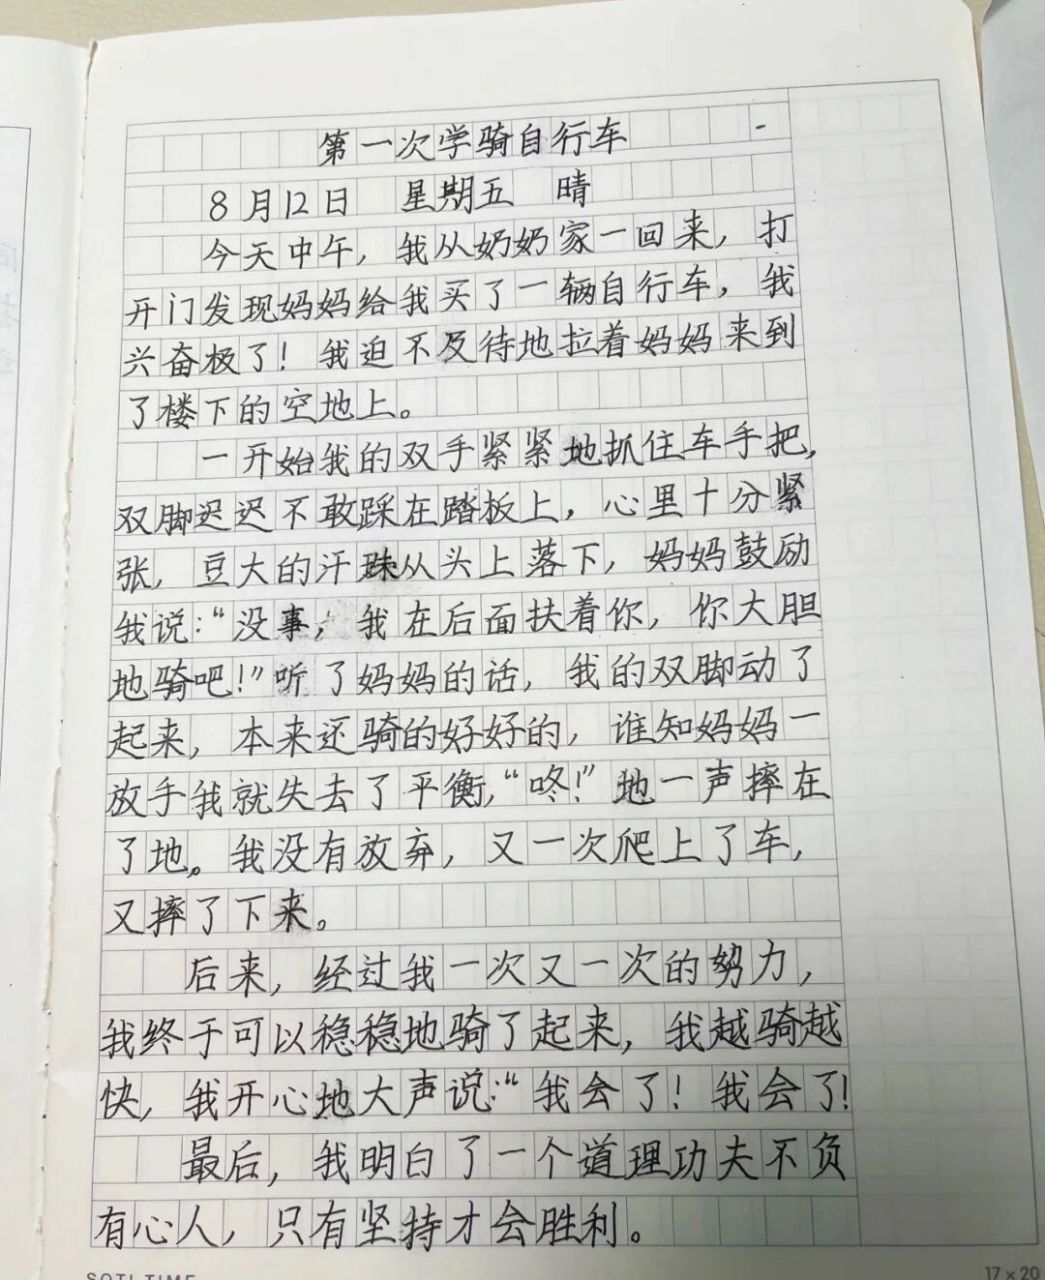 第一次学骑自行车
8月12日 星期五 晴
今天中午，我从奶奶家一回来，打
开门发现妈妈给我买了一辆自行车，我
兴奋极了！我迫不及待地拉着妈妈来到
了楼下的空地上。
一开始我的双手紧紧地抓住车手把，
双脚迟迟不敢踩在踏板上，心里十分紧
张，豆大的汗珠从头上落下，妈妈鼓励
我说：“没事，我在后面扶着你，你大胆
地骑吧！”听了妈妈的话，我的双脚动了
起来，本来还骑的好好的，谁知妈妈一
放手我就失去了平衡，“咚！”地一声摔在
了地。我没有放弃，又一次爬上了车，
又摔了下来。
后来，经过我一次又一次的努力，
我终于可以稳稳地骑了起来，我越骑越
快，我开心地大声说：“我会了！我会了！
最后，我明白了一个道理功夫不负
有心人，只有坚持才会胜利。
SOTI TIME 17×20